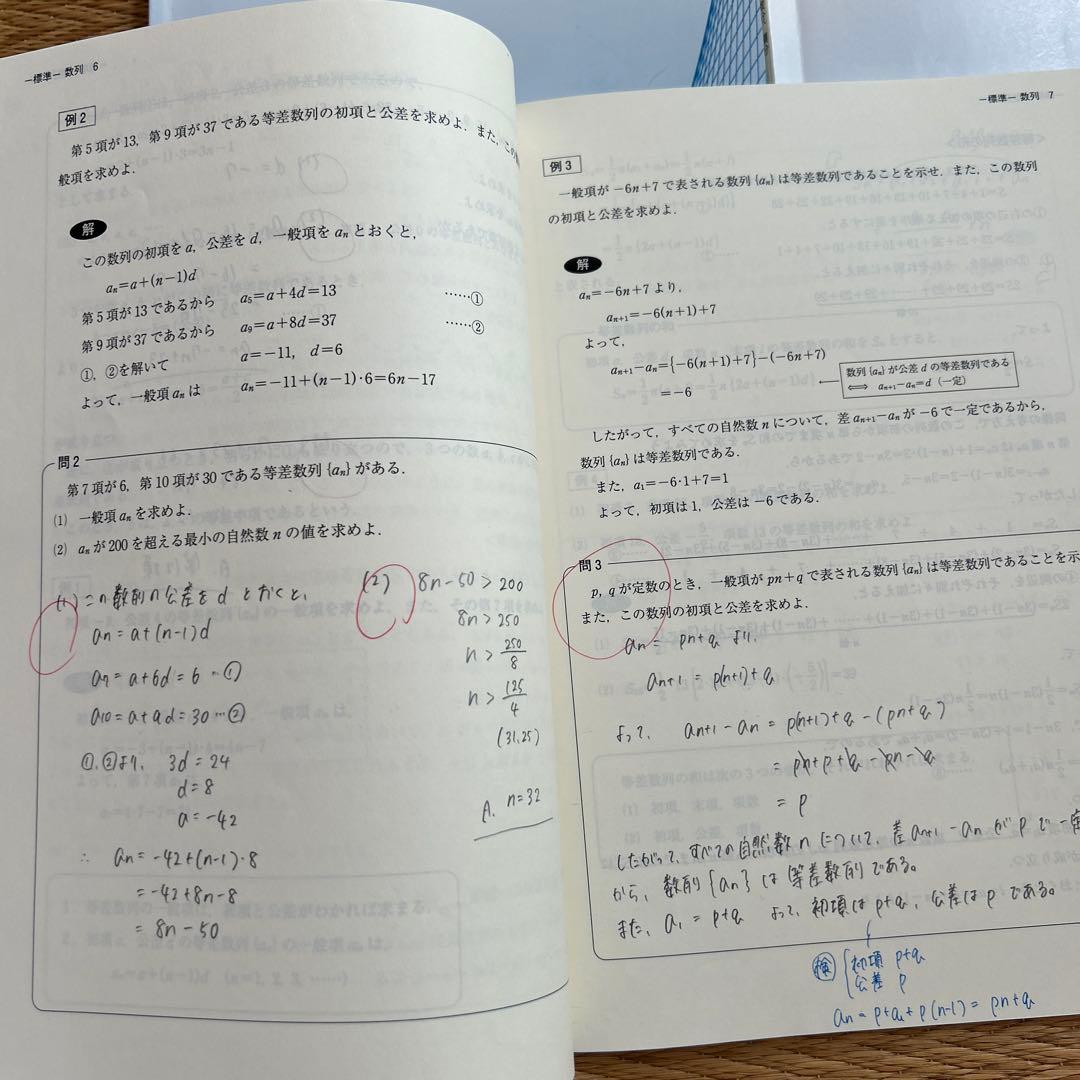 ―標準― 数列 6
例2
第5項が13，第9項が37である等差数列の初項と公差を求めよ．また，この
般項を求めよ．
解
この数列の初項をa，公差をd，一般項をanとおくと，
an=a+(n−1)d
第5項が13であるから a5=a+4d=13 ……①
第9項が37であるから a9=a+8d=37 ……②
①，②を解いて a=−11，d=6
よって，一般項anは an=−11+(n−1)·6=6n−17
問2
第7項が6，第10項が30である等差数列{an}がある．
(1) 一般項anを求めよ．
(2) anが200を超える最小の自然数nの値を求めよ．
(1) この数列の公差をdとおくと、
an=a+(n-1)d
a7=a+6d=6…①
a10=a+9d=30…②
①,②より, 3d=24
d=8
a=-42
∴ an=-42+(n-1)·8
=-42+8n-8
=8n-50
(2) 8n-50>200
8n>250
n>250/8
n>125/4
(31.25)
A. n=32
―標準― 数列 7
例3
一般項が−6n+7で表される数列{an}は等差数列であることを示せ．また，この数列
の初項と公差を求めよ．
解
an=−6n+7より，
an+1=−6(n+1)+7
よって，
an+1−an={−6(n+1)+7}−(−6n+7)
=−6
← 数列{an}が公差dの等差数列である
⟺ an+1−an=d（一定）
したがって，すべての自然数nについて，差an+1−anが−6で一定であるから，
数列{an}は等差数列である．
また，a1=−6·1+7=1
よって，初項は1，公差は−6である．
問3
p，qが定数のとき，一般項がpn+qで表される数列{an}は等差数列であることを示
また，この数列の初項と公差を求めよ．
an=pn+qより.
an+1=p(n+1)+q
よって、 an+1-an=p(n+1)+q-(pn+q)
=pn+p+q-pn-q
=p
したがって、すべての自然数nについて、差an+1-anがpで一定
から、数列{an}は等差数列である。
また、a1=p+q よって、初項はp+q,公差はpである。
検 初項 p+q
公差 p
an=p+q+p(n-1)=pn+q